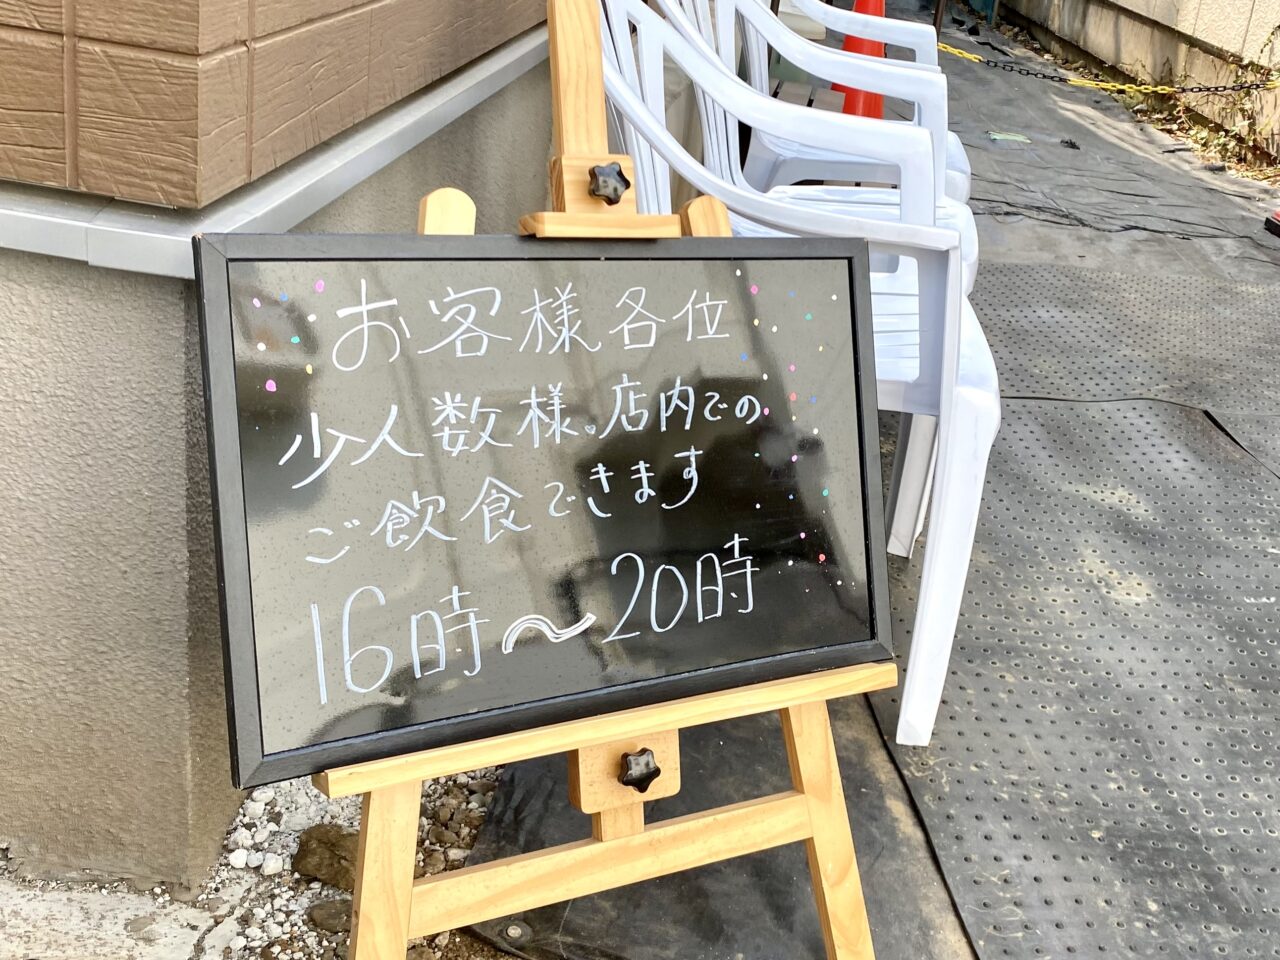 お客様各位
少人数様。店内での
ご飲食できます
16時〜20時